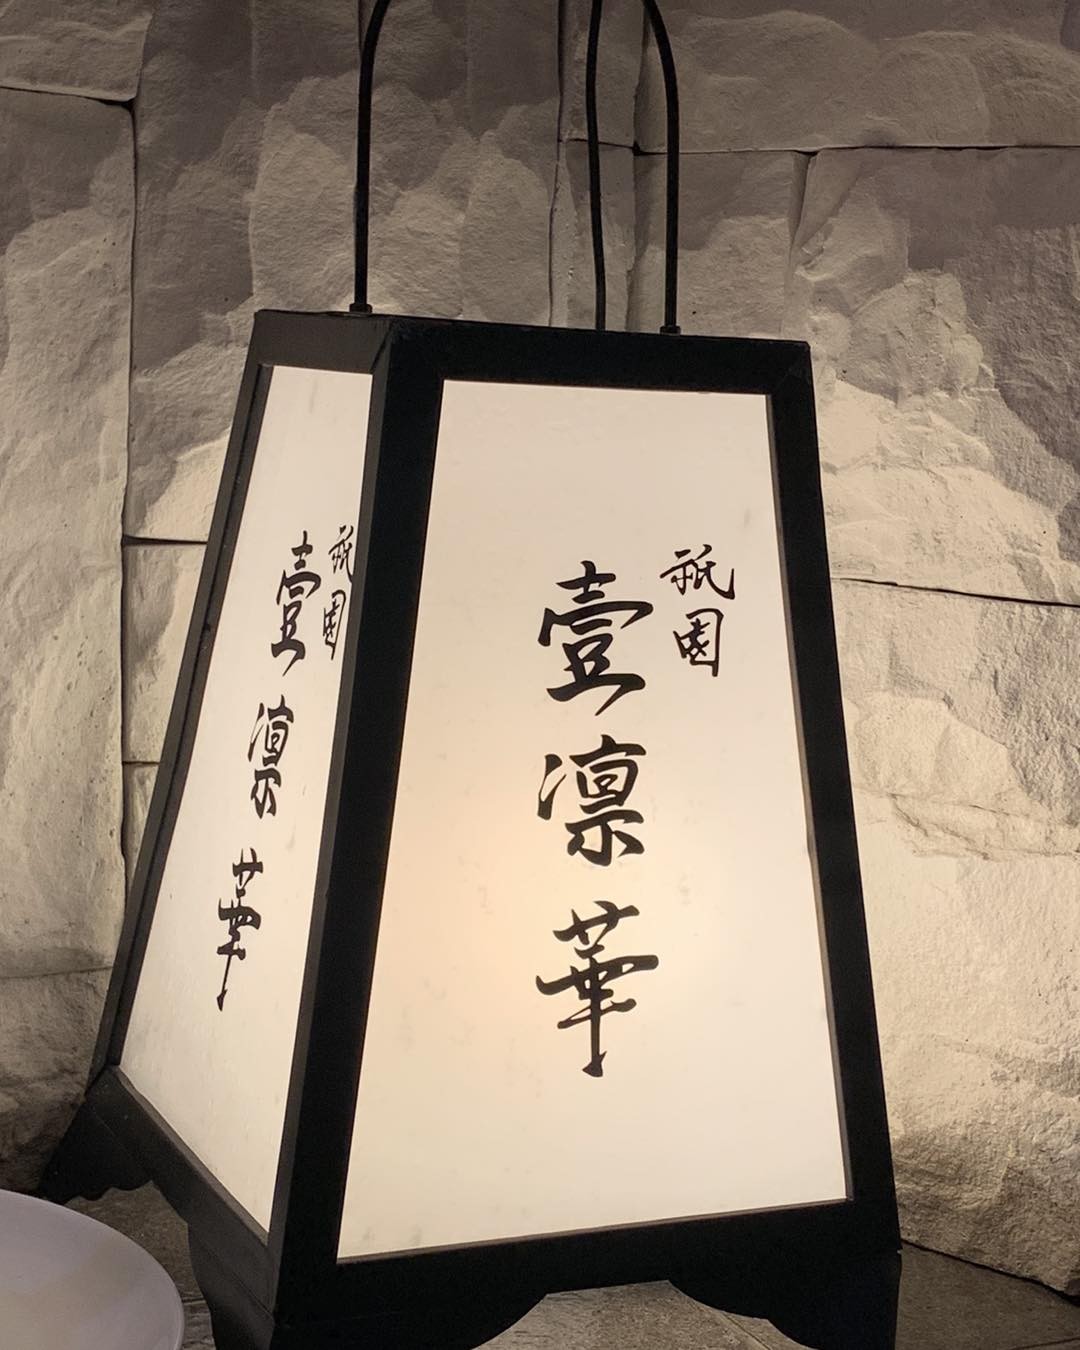 祇園
壹凛華
祇園
壹凛華